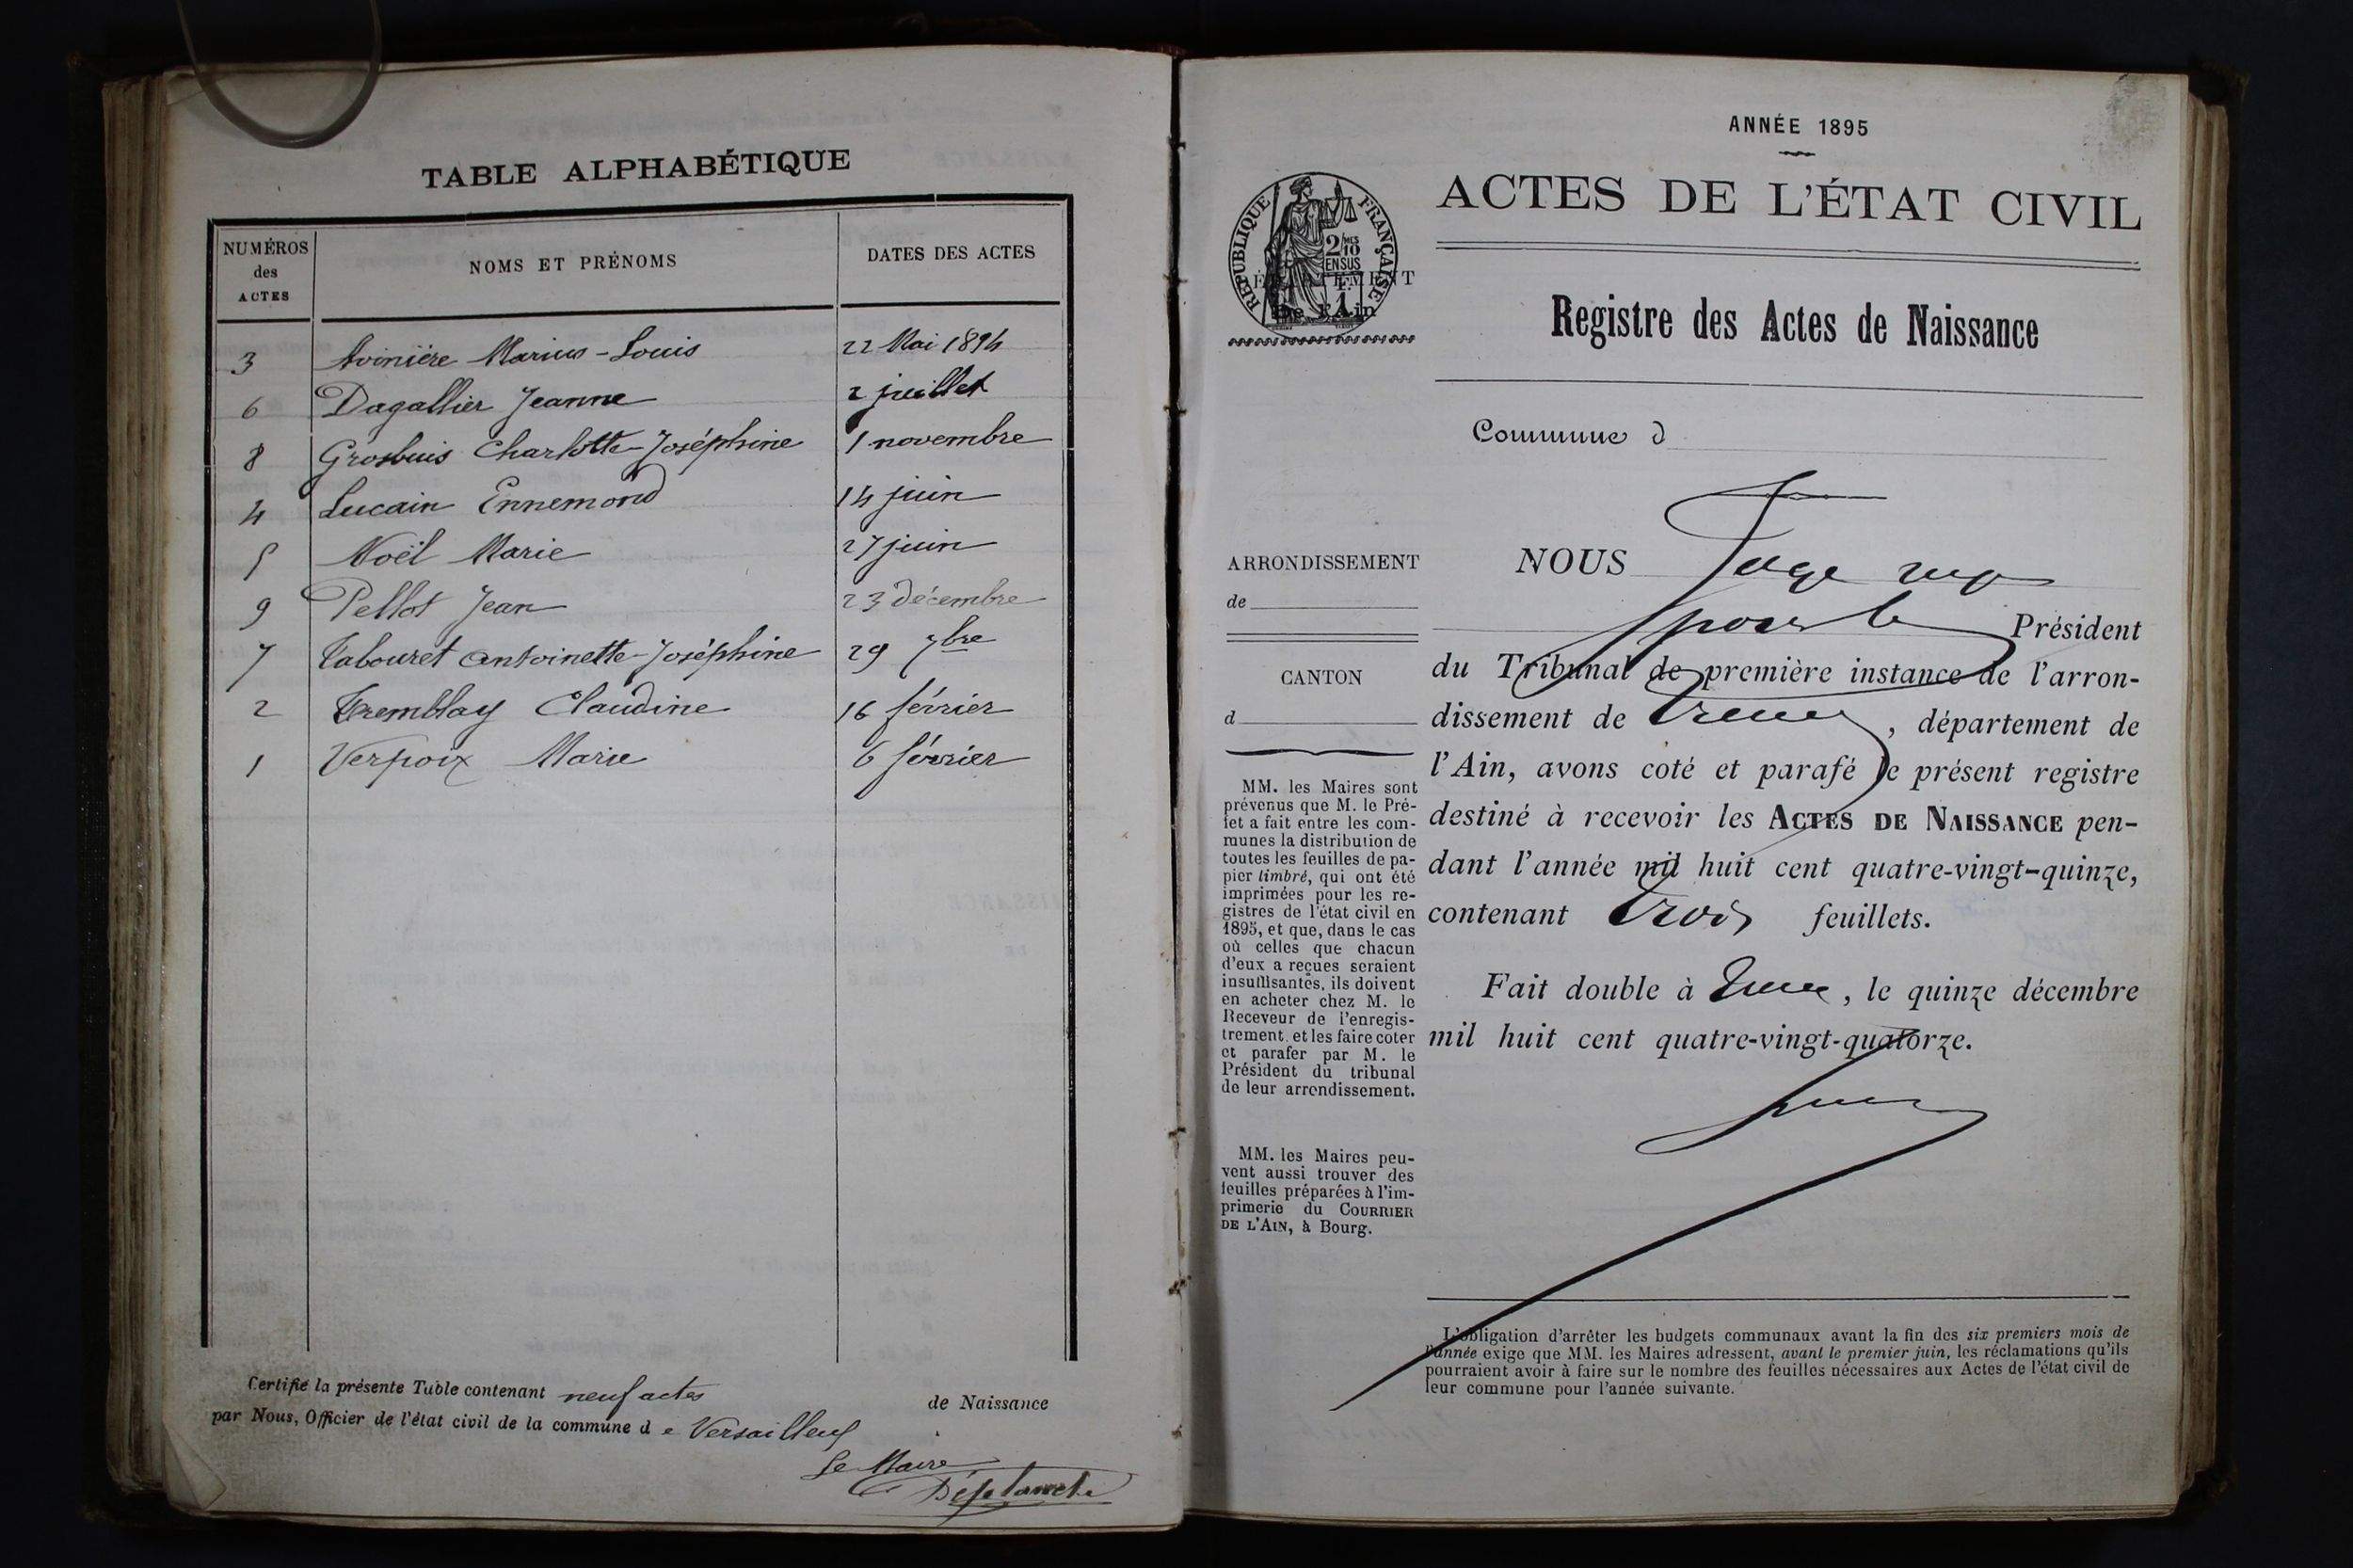 TABLE ALPHABÉTIQUE
NUMÉROS des ACTES
NOMS ET PRÉNOMS
DATES DES ACTES
3 Avinière Marius-Louis 22 Mai 1894
6 Dagallier Jeanne 2 juillet
8 Grosbuis Charlotte-Joséphine 1 novembre
4 Lucain Ennemond 14 juin
5 Noël Marie 27 juin
9 Pellot Jean 23 décembre
7 Tabouret Antoinette-Joséphine 29 7bre
2 Tremblay Claudine 16 février
1 Verpoix Marie 6 février
Certifié la présente Table contenant neuf actes de Naissance
par Nous, Officier de l'état civil de la commune d e Versailleux
Le Maire
Désplanche
ANNÉE 1895
ACTES DE L'ÉTAT CIVIL
RÉPUBLIQUE FRANÇAISE
2/10 EN SUS
De l'Ain
Registre des Actes de Naissance
Commune d
ARRONDISSEMENT
de
CANTON
d
NOUS Juge
pour le Président
du Tribunal de première instance de l'arron-
dissement de Trévoux, département de
l'Ain, avons coté et parafé le présent registre
destiné à recevoir les ACTES DE NAISSANCE pen-
dant l'année mil huit cent quatre-vingt-quinze,
contenant trois feuillets.
Fait double à Trévoux, le quinze décembre
mil huit cent quatre-vingt-quatorze.
MM. les Maires sont
prévenus que M. le Pré-
fet a fait entre les com-
munes la distribution de
toutes les feuilles de pa-
pier timbré, qui ont été
imprimées pour les re-
gistres de l'état civil en
1895, et que, dans le cas
où celles que chacun
d'eux a reçues seraient
insuffisantes, ils doivent
en acheter chez M. le
Receveur de l'enregis-
trement et les faire coter
et parafer par M. le
Président du tribunal
de leur arrondissement.
MM. les Maires peu-
vent aussi trouver des
feuilles préparées à l'im-
primerie du COURRIER
DE L'AIN, à Bourg.
L'obligation d'arrêter les budgets communaux avant la fin des six premiers mois de
l'année exige que MM. les Maires adressent, avant le premier juin, les réclamations qu'ils
pourraient avoir à faire sur le nombre des feuilles nécessaires aux Actes de l'état civil de
leur commune pour l'année suivante.